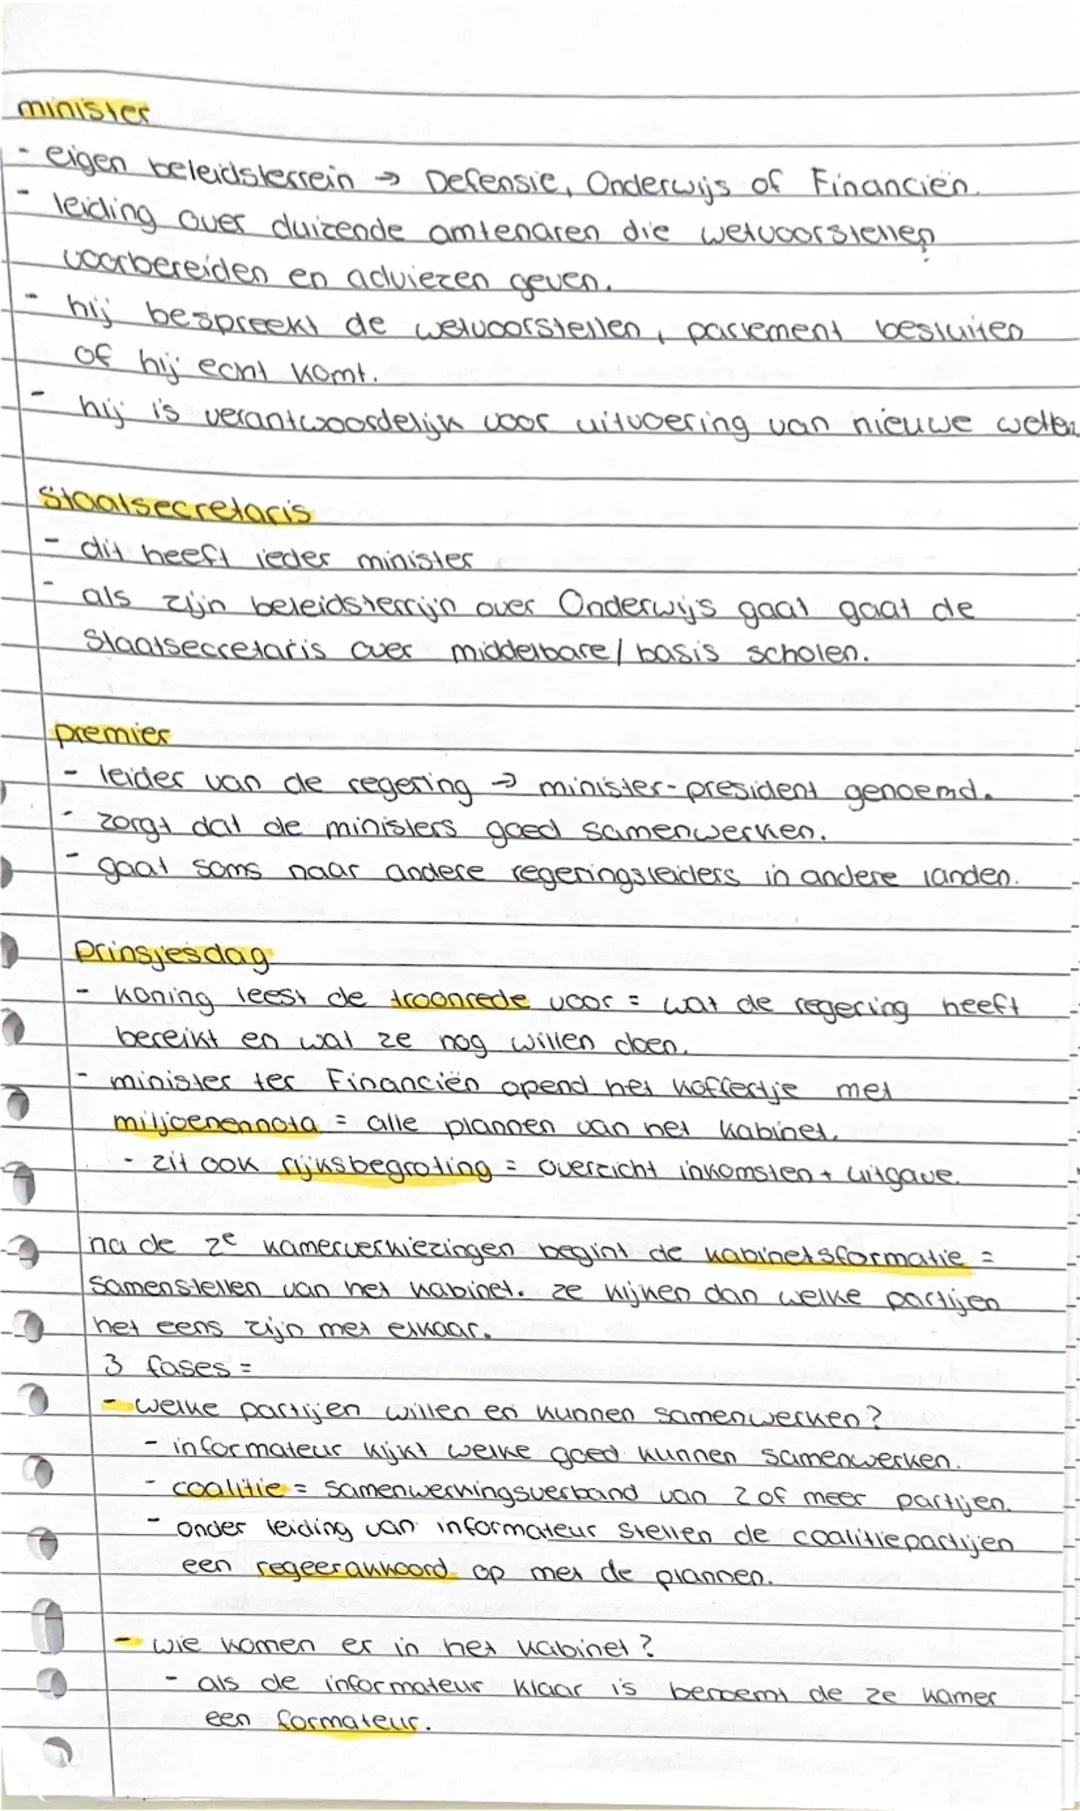 minister
- eigen beleidsterrein → Defensie, Onderwijs of Financiën.
- leiding over duizende amtenaren die wetvoorstellen
voorbereiden en adviezen geven.
- hij bespreekt de wetvoorstellen, parlement besluiten
of hij echt komt.
- hij is verantwoordelijk voor uitvoering van nieuwe wetten
Staatsecretaris
- dit heeft ieder minister
- als zijn beleidsterrijn over Onderwijs gaat gaat de
Staatsecretaris over middelbare/basis scholen.
premier
- leider van de regering → minister-president genoemd.
- zorgt dat de ministers goed samenwerken.
- gaat soms naar andere regeringsleiders in andere landen.
Prinsjesdag
- koning leest de troonrede voor = wat de regering heeft
bereikt en wat ze nog willen doen.
- minister ter Financiën opend het koffertje met
miljoenennota = alle plannen van het kabinet.
- zit ook rijksbegroting = overzicht inkomsten + uitgave.
na de 2e kamerverkiezingen begint de kabinetsformatie =
samenstellen van het kabinet. ze kijken dan welke partijen
het eens zijn met elkaar.
3 fases =
- welke partijen willen en kunnen samenwerken?
- informateur kijkt welke goed kunnen samenwerken.
- coalitie = samenwerkingsverband van 2 of meer partijen.
- onder leiding van informateur stellen de coalitiepartijen
een regeerakkoord op met de plannen.
- wie komen er in het kabinet?
- als de informateur klaar is benoemt de 2e kamer
een formateur.